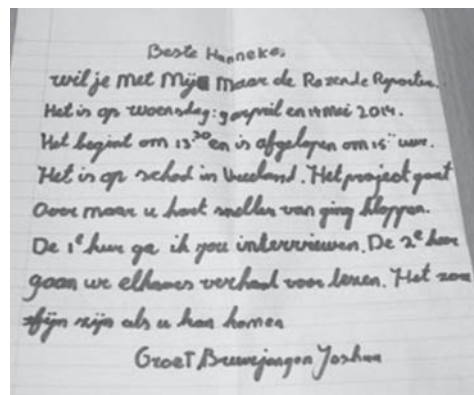 Beste Hanneke,
wil je met Mij naar de Razende Reporter.
Het is op woensdag: 9 april en 14 mei 2014.
Het begint om 13³⁰ en is afgelopen om 15¨ uur.
Het is op school in Vreeland. Het project gaat
over waar u hart sneller van ging kloppen.
De 1ᵉ keer ga ik you interviewen. De 2ᵉ keer
gaan we elkaars verhaal voor lezen. Het zou
fijn zijn als u kan komen
Groet Buurjongen Joshua